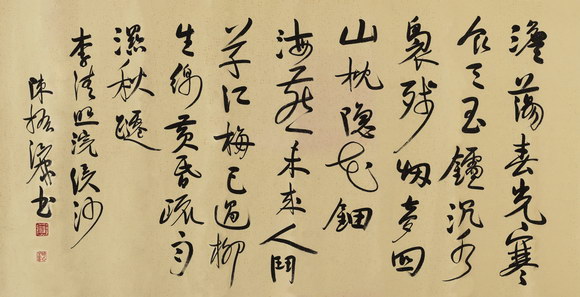 澹蕩春光寒
食天玉鑪沉水
裊殘烟夢回
山枕隐花鈿
海燕未来人鬥
草江梅已過柳
生綿黄昏疏雨
濕秋韆
李清照浣溪沙
陳振濂书